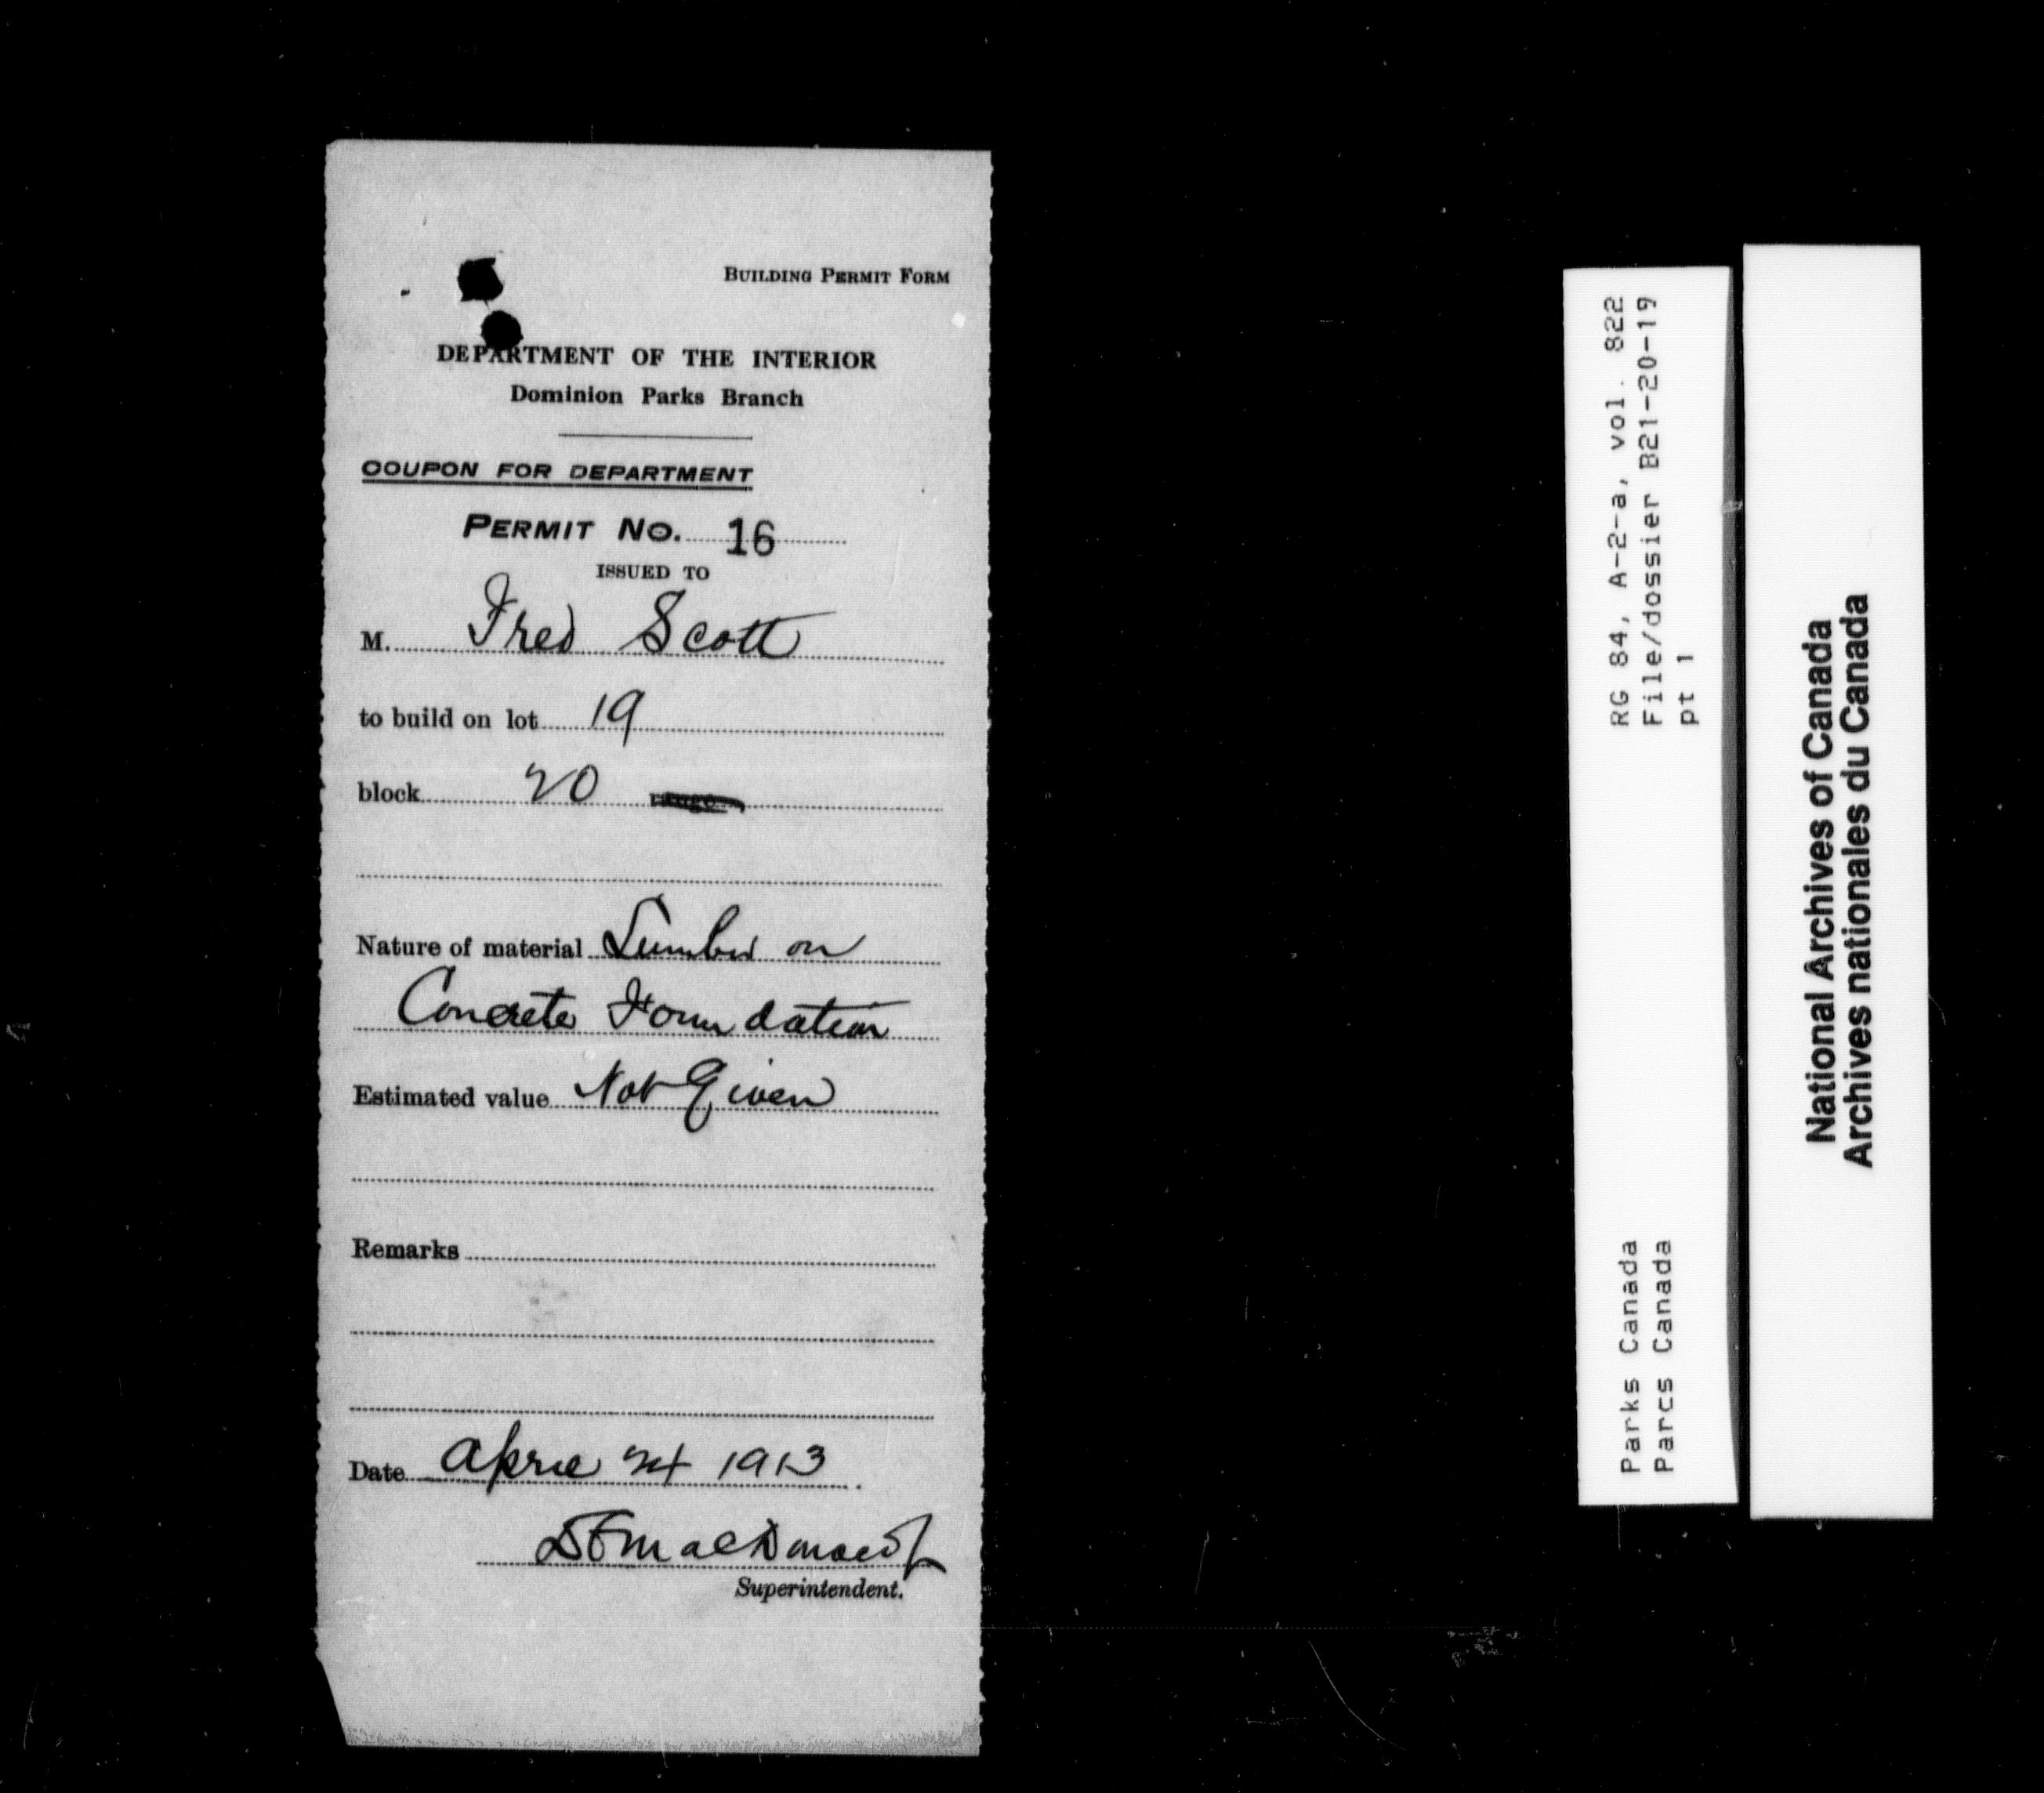 BUILDING PERMIT FORM
DEPARTMENT OF THE INTERIOR
Dominion Parks Branch
COUPON FOR DEPARTMENT
PERMIT No. 16
ISSUED TO
M. Fred Scott
to build on lot 19
block 20 range
Nature of material Lumber on
Concrete Foundation
Estimated value Not Given
Remarks
Date April 24 1913
Superintendent.
RG 84, A-2-a, vol. 822
File/dossier B21-20-19
pt 1
Parks Canada
Parcs Canada
National Archives of Canada
Archives nationales du Canada